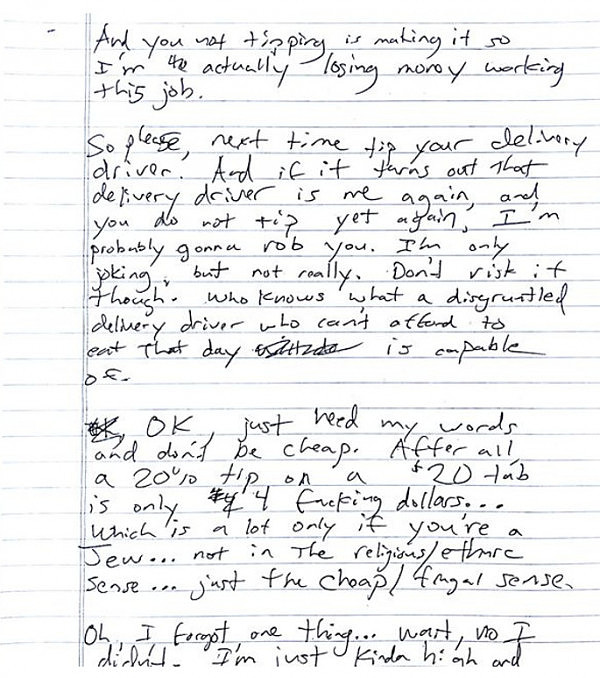 And you not tipping is making it so
I'm actually losing money working
this job.
So please, next time tip your delivery
driver. And if it turns out that
delivery driver is me again, and
you do not tip yet again, I'm
probably gonna rob you. I'm only
joking, but not really. Don't risk it
though. Who knows what a disgruntled
delivery driver who can't afford to
eat that day is capable
of.
OK, just heed my words
and don't be cheap. After all,
a 20% tip on a $20 tab
is only 4 fucking dollars...
Which is a lot only if you're a
Jew... not in the religious/ethnic
sense... just the cheap/frugal sense.
Oh, I forgot one thing... wait, no I
didn't. I'm just kinda high and